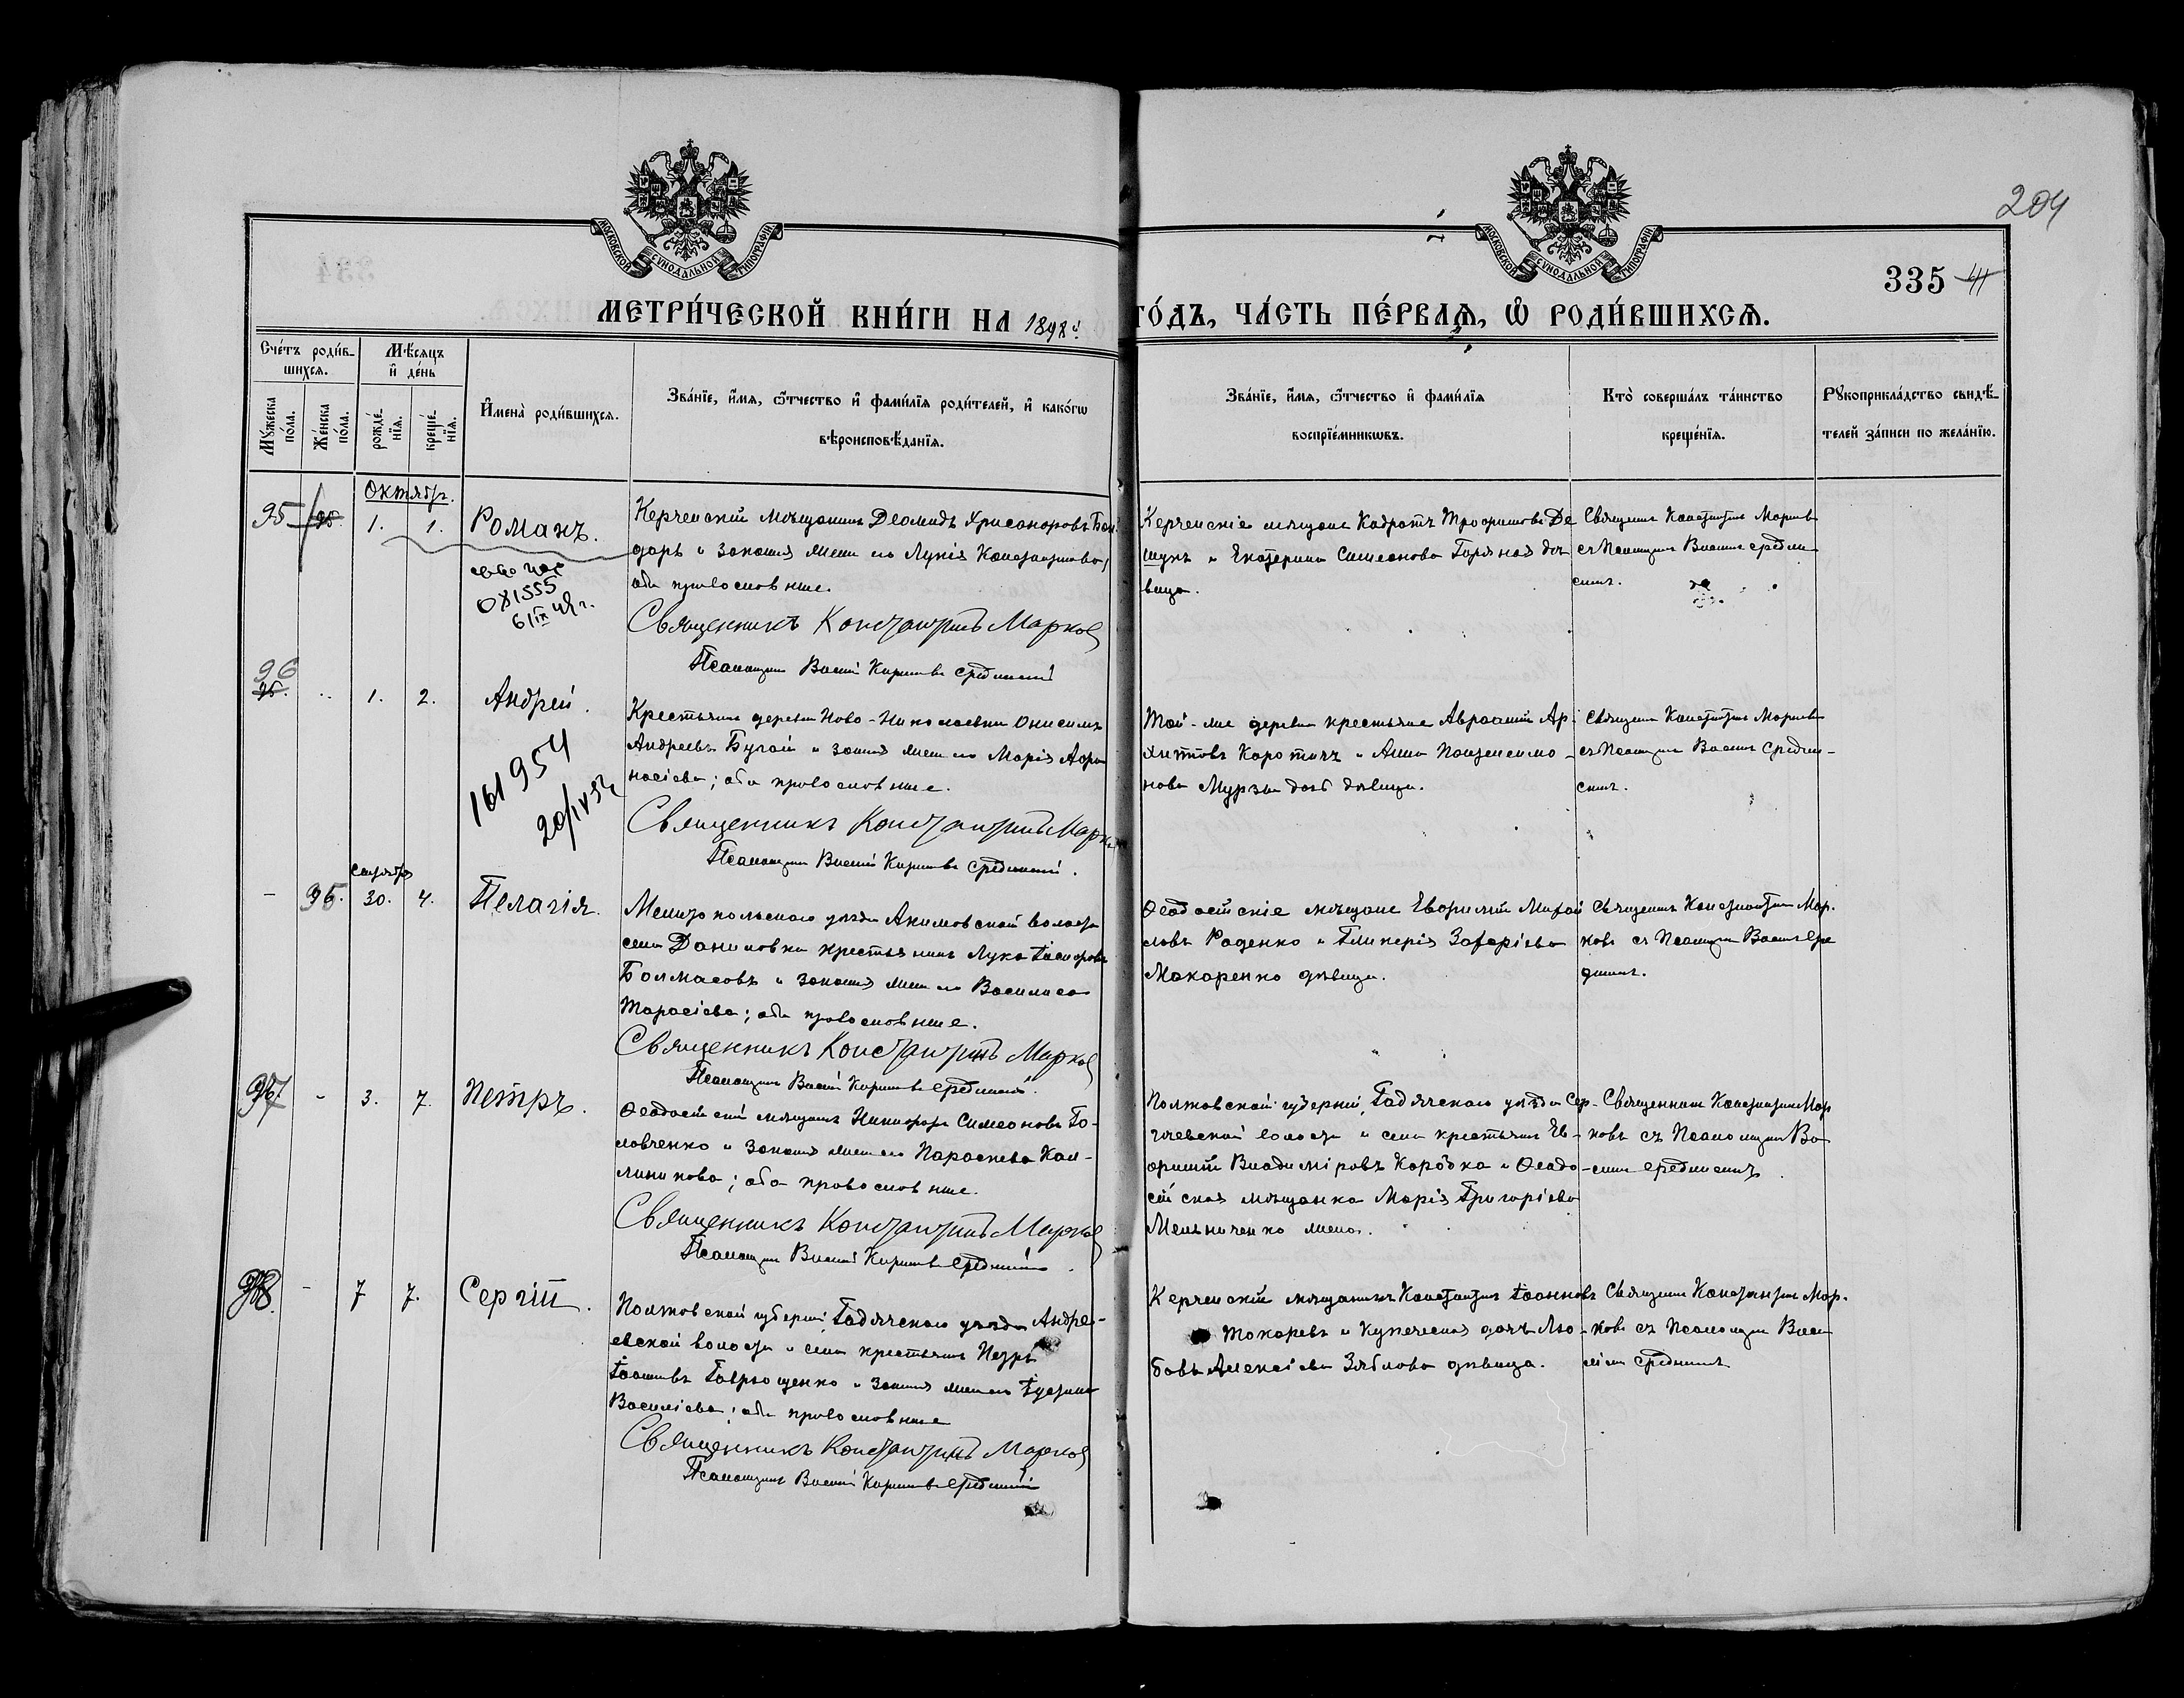 204
335
МОСКОВСКОЙ СѴНОДАЛЬНОЙ ТИПОГРАФІИ
МОСКОВСКОЙ СѴНОДАЛЬНОЙ ТИПОГРАФІИ
МЕТРИ́ЧЕСКОЙ КНИ́ГИ НА 1898 ГО́ДЪ, ЧА́СТЬ ПЕ́РВАѦ, Ѡ РОДИ́ВШИХСѦ.
Сче́тъ роди́в-
шихсѧ.
Мѣ́сѧцъ
и де́нь
Мꙋ́жеска
по́ла.
Же́нска
по́ла.
рожде́-
нїѧ.
креще́-
нїѧ.
Имена̀ роди́вшихсѧ.
Зва́нїе, и́мѧ, ѻ́тчество и фами́лїѧ роди́телей, и како́гѡ
вѣроисповѣ́данїѧ.
Зва́нїе, и́мѧ, ѻ́тчество и фами́лїѧ
воспрїе́мникѡвъ.
Кто̀ соверша́лъ та́инство
креще́нїѧ.
Рꙋкоприкла́дство свидѣ́-
телей за́писи по жела́нїю.
Октябр.
95 1. 1. Романъ.
Керченскій мѣщанинъ Деомидъ Хрисанфовъ Бон-
дарь и законная жена его Лукія Константинова,
оба православные.
Священникъ Константинъ Марков
Псаломщикъ Василій Кириловъ Срединскій
Екатерина Симеонова
вица.
Священникъ Константинъ Марковъ
съ Псаломщикомъ Василіемъ Средин-
скимъ.
081555
6/IX 48 г.
96 1. 2. Андрей.
161954
20/IV 52
Крестьянинъ деревни Ново-Николаевки Онисимъ
Андреевъ Бугай и законная жена его Марія Афа-
насіева; оба православные.
Священникъ Константинъ Марков
Псаломщикъ Василій Кириловъ Срединскій.
Той-же деревни крестьяне Авраамій Ар-
хиповъ Коротичъ и Анна
нова дѣвица.
Священникъ Константинъ Марковъ
съ Псаломщикомъ Василіемъ Средин-
скимъ.
Сентября
- 95. 30. 4. Пелагія.
Мелитопольскаго уѣзда Акимовской волости
села Даниловки крестьянинъ Лука
Болмасовъ и законная жена его Василиса
Тарасіева; оба православные.
Священникъ Константинъ Марков
Псаломщикъ Василій Кириловъ Срединскій.
Ѳеодосійскіе мѣщане Евфимій Михай-
ловъ Раденко и Гликерія Захаріева
Макаренко дѣвица.
Священникъ Константинъ Мар-
ковъ съ Псаломщикомъ Василіемъ Сре-
97 - 3. 7. Петръ.
Ѳеодосійскій мѣщанинъ Никифоръ Симеоновъ Го-
ловченко и законная жена его Параскева Кал-
линикова; оба православные.
Священникъ Константинъ Марков
Псаломщикъ Василій Кириловъ Срединскій.
Полтавской губерніи, Гадячскаго уѣзда Сер-
гіевской волости и села крестьянинъ Ев-
фимій Владиміровъ Коробка и Ѳеодо-
сійская мѣщанка Марія Григоріева
Мельниченко жена.
Священникъ Константинъ Мар-
ковъ съ Псаломщикомъ Ва-
силіемъ Срединскимъ.
98 - 7 7. Сергій.
Полтавской губерніи Гадячскаго уѣзда Андре-
евской волости и села крестьянинъ Петръ
Іоанновъ Гаврющенко и законная жена его Іустина
Василіева; оба православные
Священникъ Константинъ Марков
Псаломщикъ Василій Кириловъ Срединскій
Керченскій мѣщанинъ Константинъ Іоанновъ
Токаревъ и Купеческая дочь Лю-
бовь Алексіева Зяблова дѣвица.
Священникъ Константинъ Мар-
ковъ съ Псаломщикомъ Васи-
ліемъ Срединскимъ